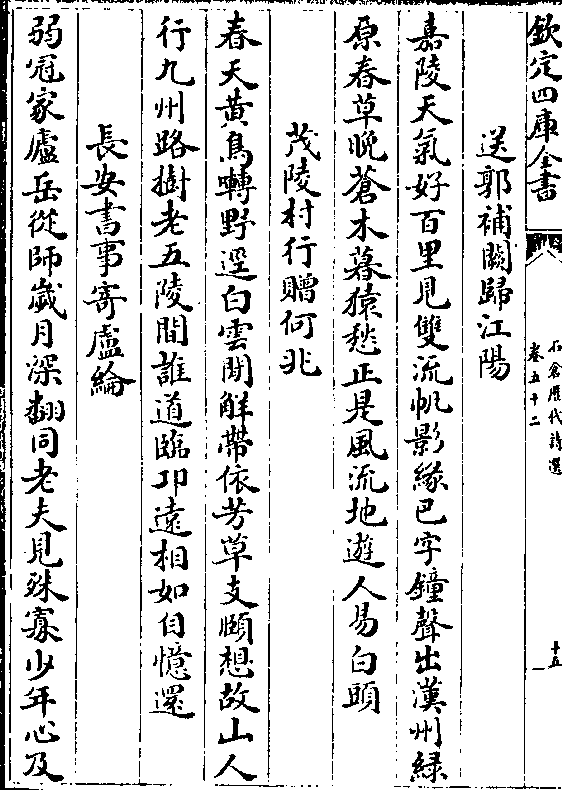 欽定四庫全書
石倉歷代詩選
卷五十二
十五
送郭補闕歸江陽
嘉陵天氣好百里見雙流帆影緣巴字鐘聲出漢州綠
原春草晚蒼木暮猿愁正是風流地遊人易白頭
茂陵村行贈何兆
春天黃鳥囀野逕白雲閒觧帶依芳草支頤想故山人
行九州路樹老五陵間誰道臨卭遠相如自憶還
長安書事寄盧綸
弱冠家廬岳從師歲月深翻同老夫見殊寡少年心及